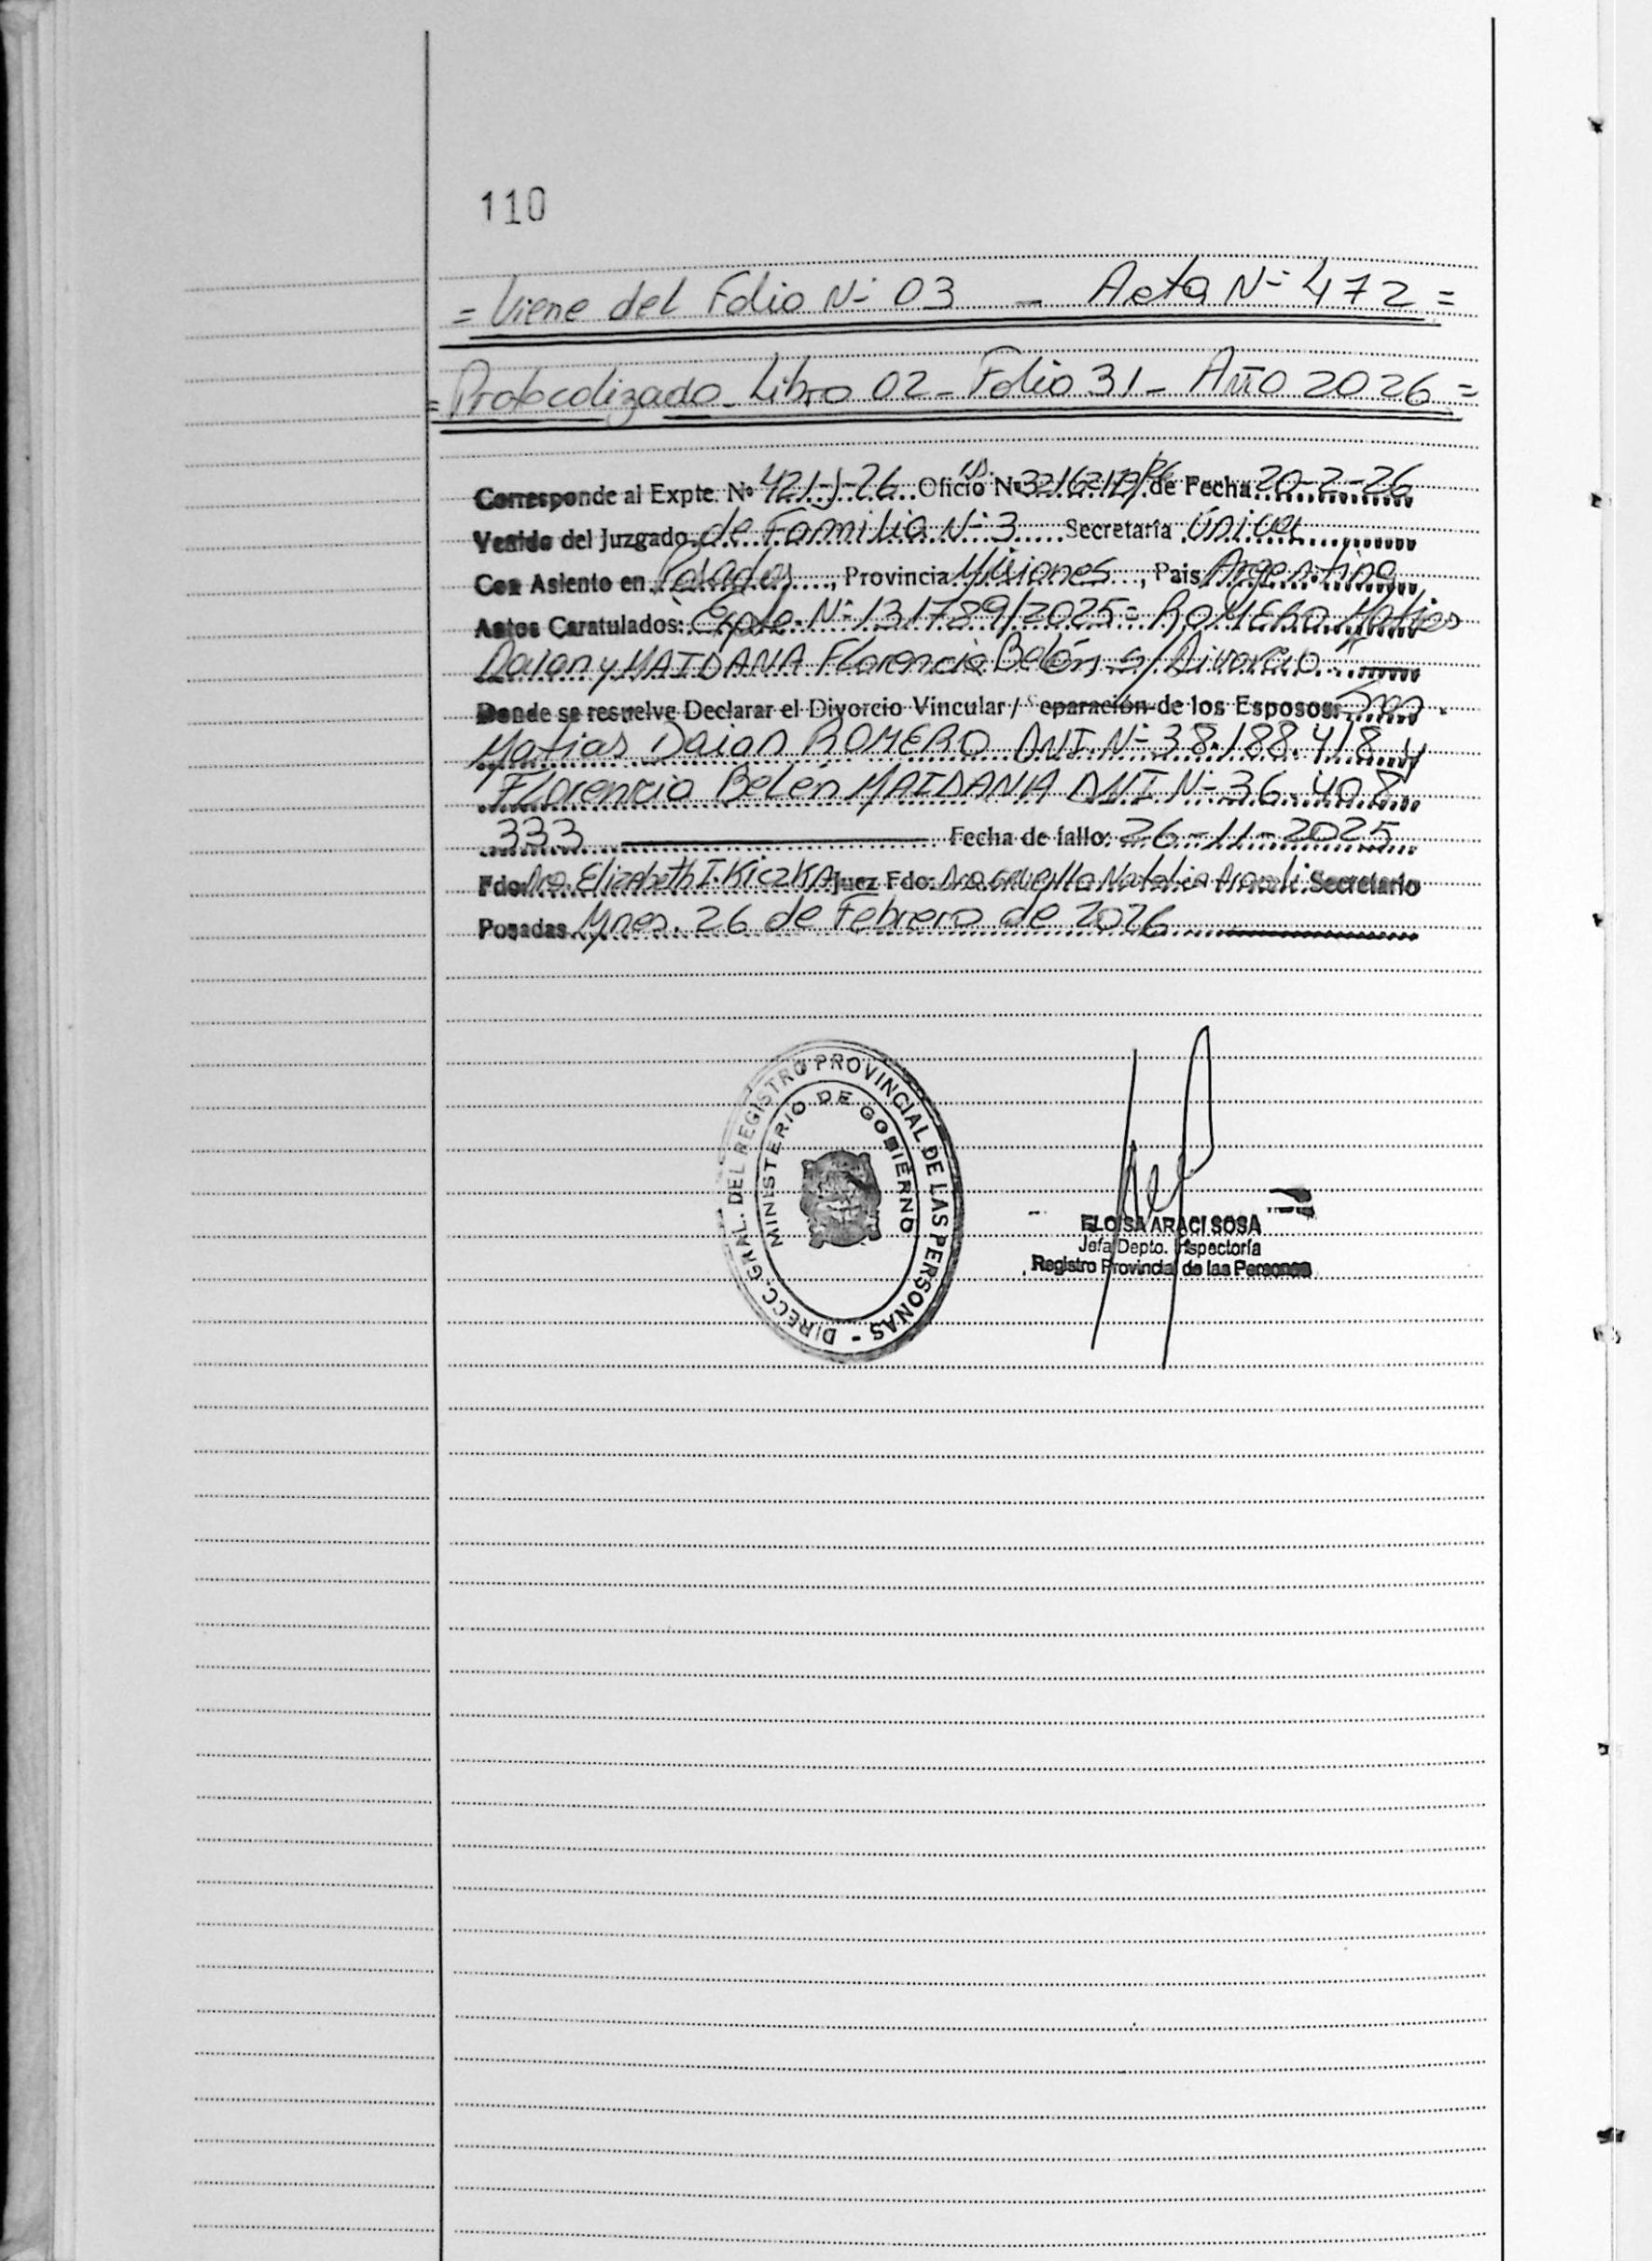 110
= Viene del Folio Nº 03 - Acta Nº 472 =
= Protocolizado - Libro 02 - Folio 31 - Año 2026 =
Corresponde al Expte. Nº 421-J-26 Oficio Nº de Fecha 20-2-26
Venido del Juzgado de Familia Nº 3 Secretaría Única
Con Asiento en Posadas, Provincia Misiones, Pais Argentina
Autos Caratulados: Expte. Nº 131789/2025 = ROMERO Matias
Daian y MAIDANA Florencia Belén s/ Divorcio.
Donde se resuelve Declarar el Divorcio Vincular / Separación de los Esposos:
Matias Daian ROMERO DNI. Nº 38.188.418 y
Florencia Belén MAIDANA DNI Nº 36.408.
333 Fecha de fallo: 26-11-2025
Fdo: Dra. Elizabeth I. KiczKA Juez Fdo: Dra. Natalia Araceli Secretario
Posadas Mnes. 26 de Febrero de 2026
DIRECC. GRAL. DEL REGISTRO PROVINCIAL DE LAS PERSONAS -
MINISTERIO DE GOBIERNO
ELOISA ARACI SOSA
Jefa Depto. Inspectoría
Registro Provincial de las Personas